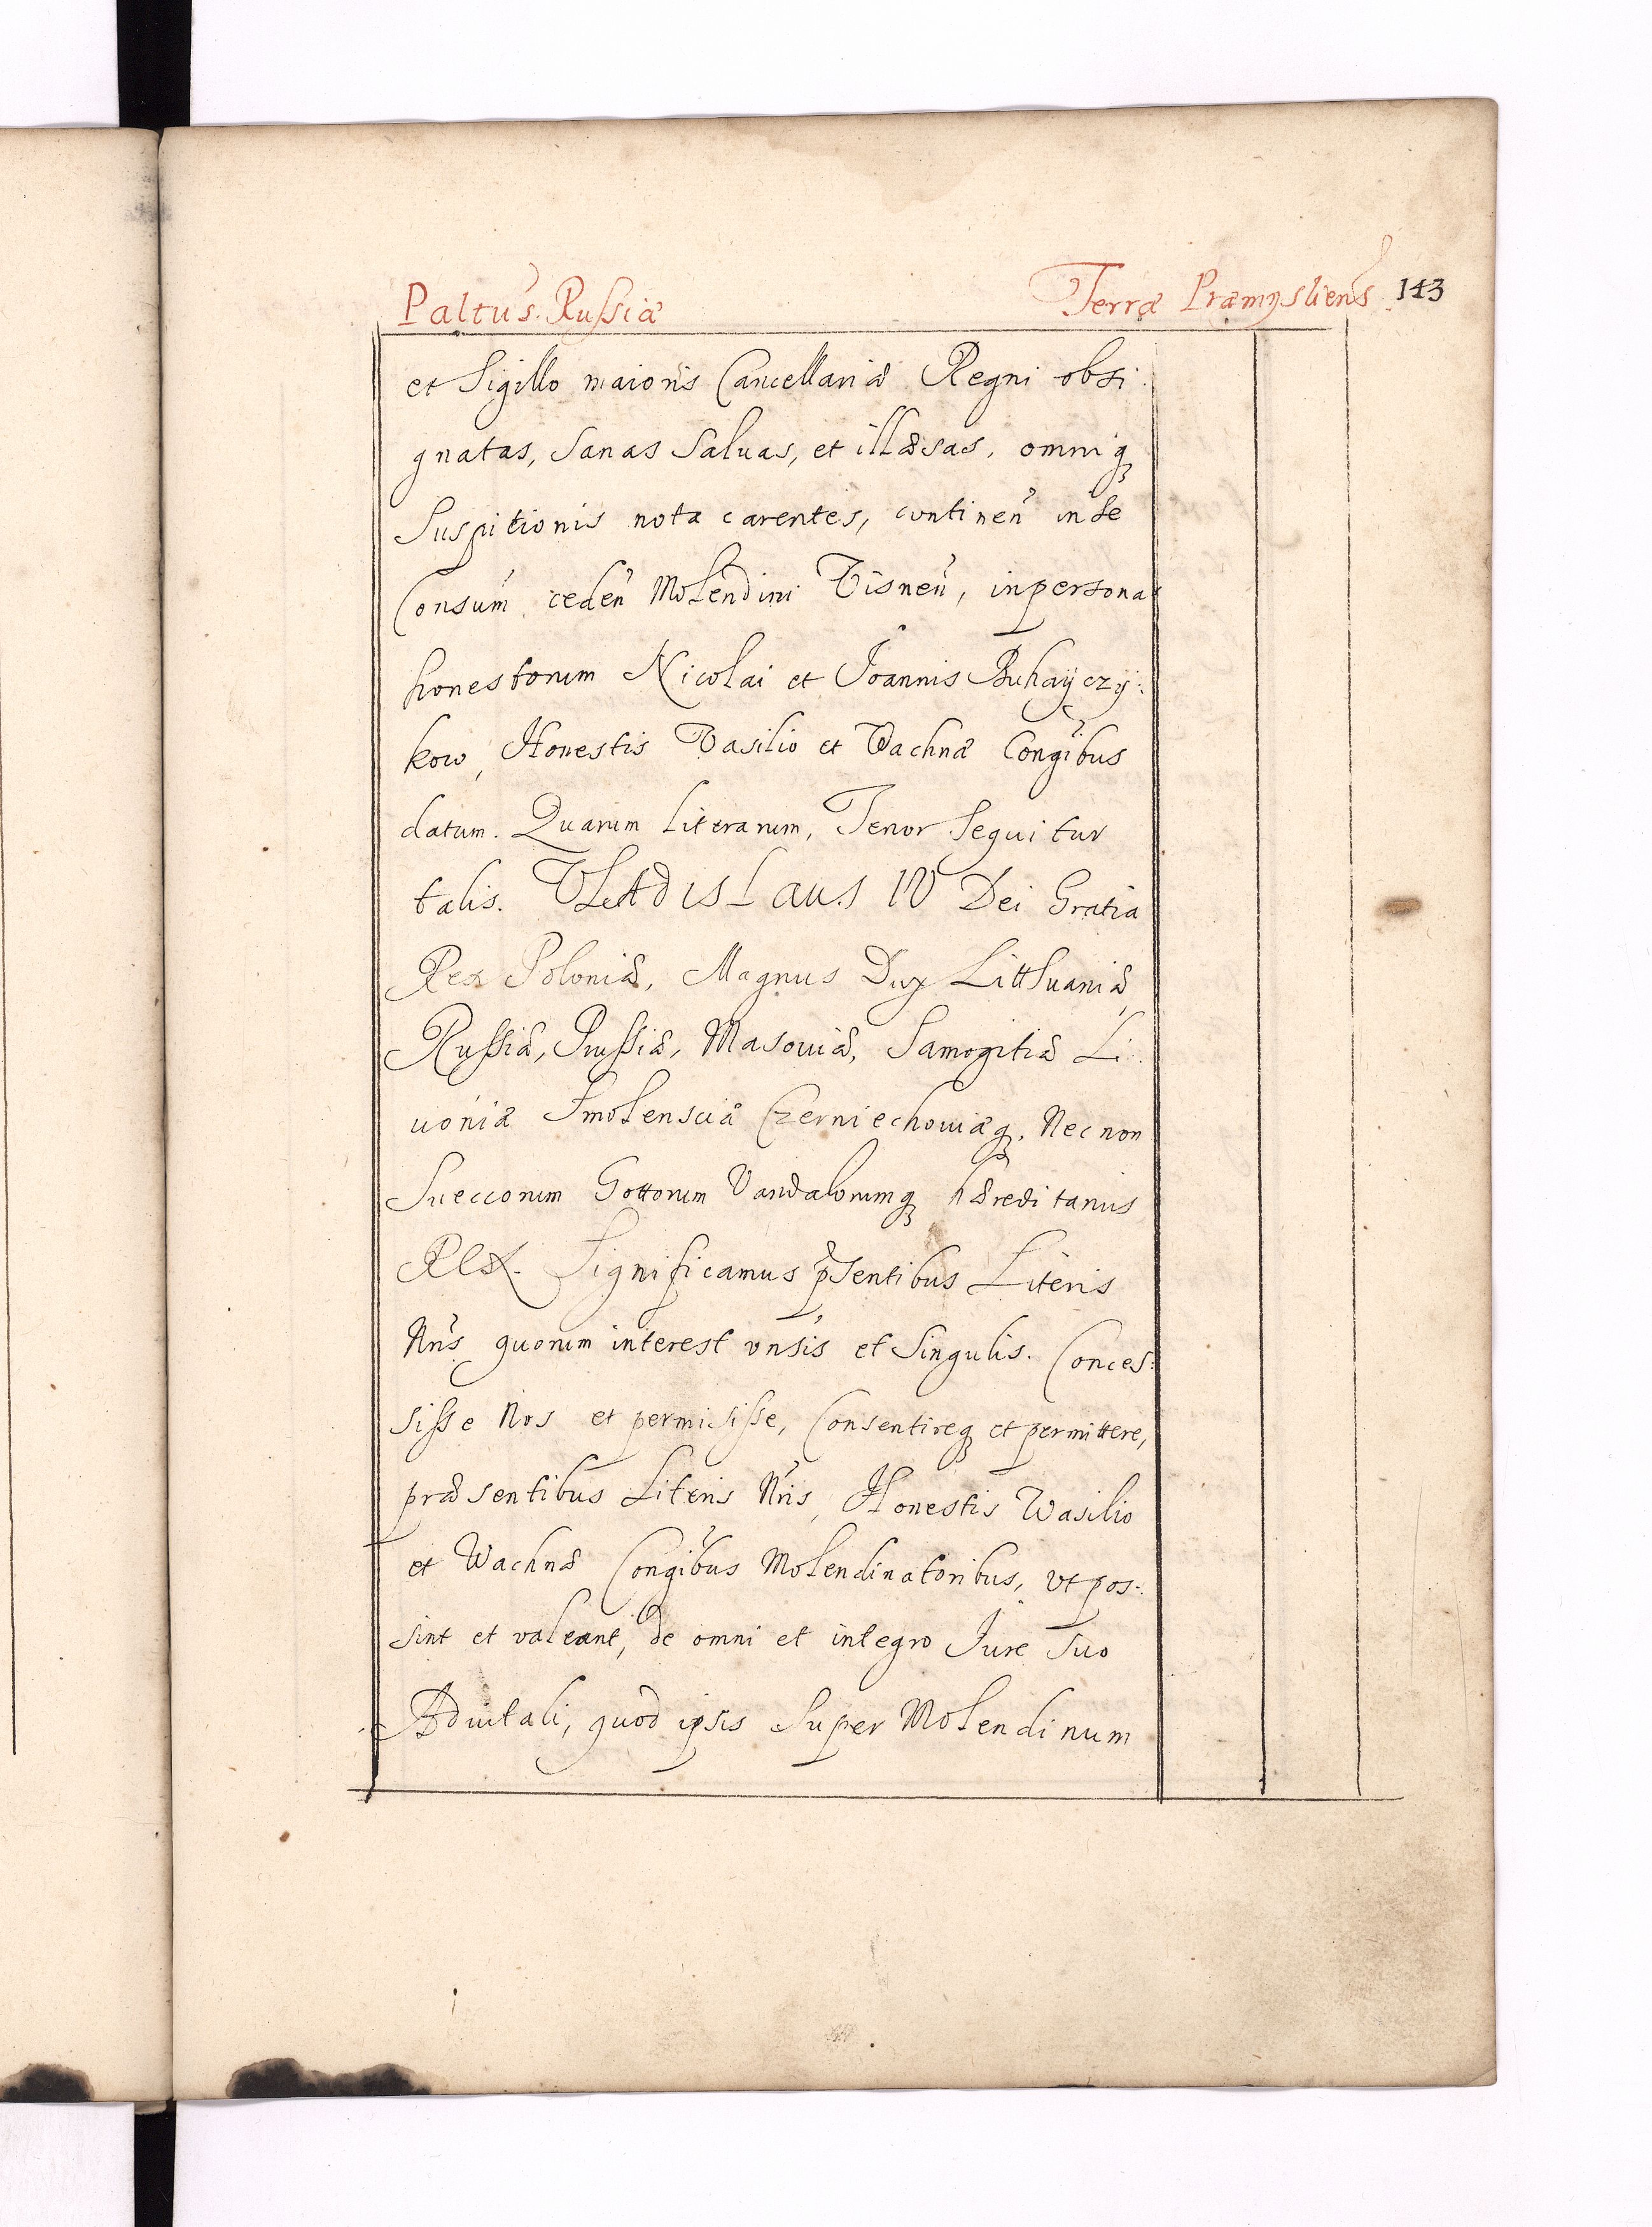 Paltus. Russiæ Terræ Præmysliens. 143
et Sigillo maioris Cancellariæ Regni obsi:
gnatas, Sanas Saluas, et illæsas, omniq́
Suspitionis nota carentes, continen̄ in se
Consum̄ ceden̄ Molendini Visnen̄, in persona
honestorum Nicolai et Joannis Buhayczy:
kow, Honestis Vasilio et Wachnæ Congībus
datum. Quarum Literarum, Tenor Sequitur
talis. VLAdisLaus IV Dei Gratia
Rex Poloniæ, Magnus Dux Litthuaniæ,
Russiæ, Prussiæ, Masouiæ, Samogitiæ Li:
uoniæ Smolensciæ Czerniechouiæq́. Nec non
Sueccorum Gottorum Vandalorumq́ hæreditarius
REX. Significamus p̄sentibus Literis
Nrīs quorum interest vnsīs et Singulis. Conces:
sisse Nos et permisisse, Consentireq́ et permittere,
præsentibus Literis Nrīs, Honestis Wasilio
et Wachnæ Congībus Molendinatoribus, vt pos:
sint et valeant, de omni et integro Jure Suo
Aduitali, quod ipsis Super Molendinum